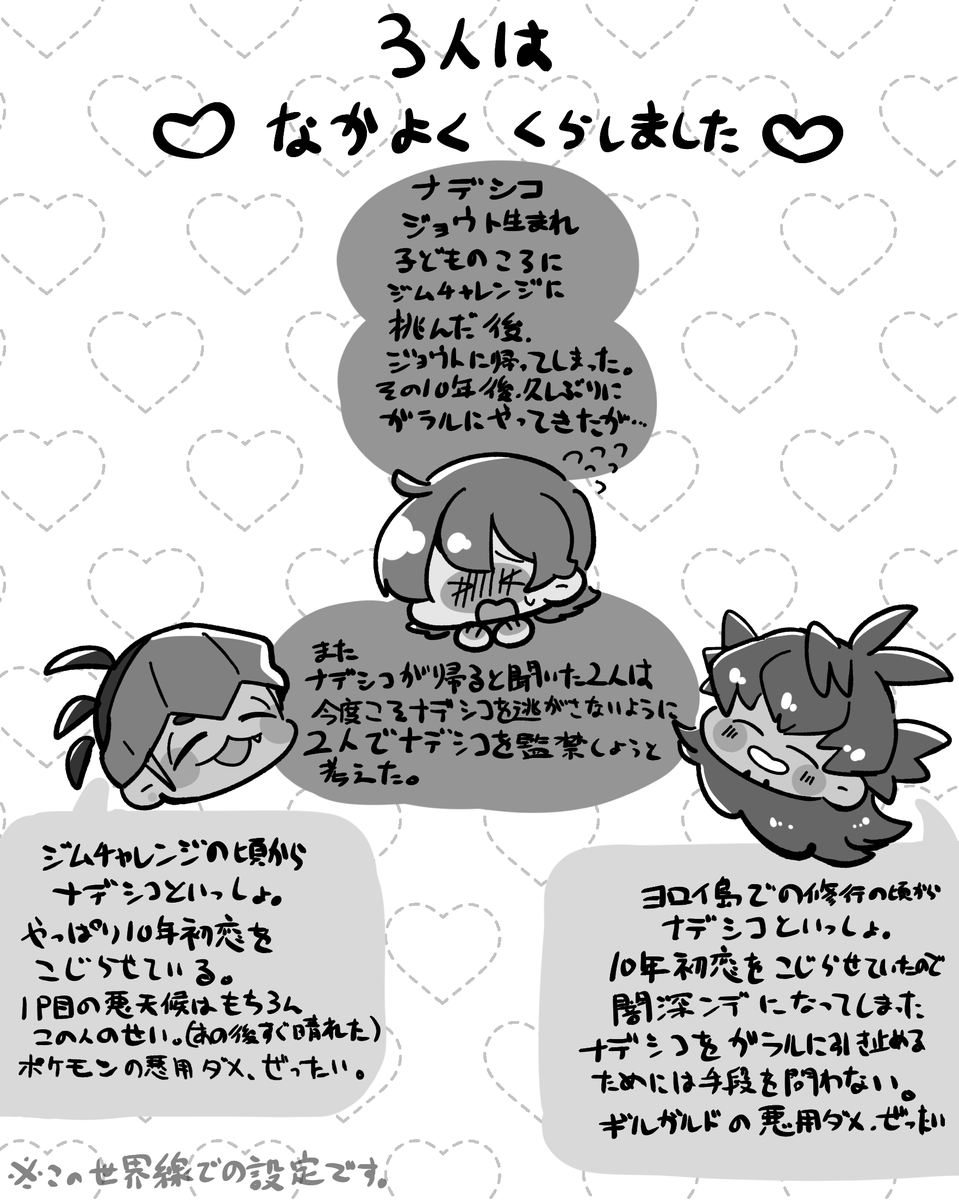 3人は
なかよく くらしました
ナデシコ
ジョウト生まれ
子どものころに
ジムチャレンジに
挑んだ後、
ジョウトに帰ってしまった。
その10年後、久しぶりに
ガラルにやってきたが…
また
ナデシコが帰ると聞いた2人は
今度こそナデシコを逃がさないように
2人でナデシコを監禁しようと
考えた。
ジムチャレンジの頃から
ナデシコといっしょ。
やっぱり10年初恋を
こじらせている。
1P目の悪天候はもちろん
この人のせい。(あの後すぐ晴れた)
ポケモンの悪用ダメ、ぜったい。
ヨロイ島での修行の頃から
ナデシコといっしょ。
10年初恋をこじらせていたので
闇深ンデになってしまった
ナデシコをガラルに引き止める
ためには手段を問わない。
ギルガルドの悪用ダメ、ぜったい
※この世界線での設定です。